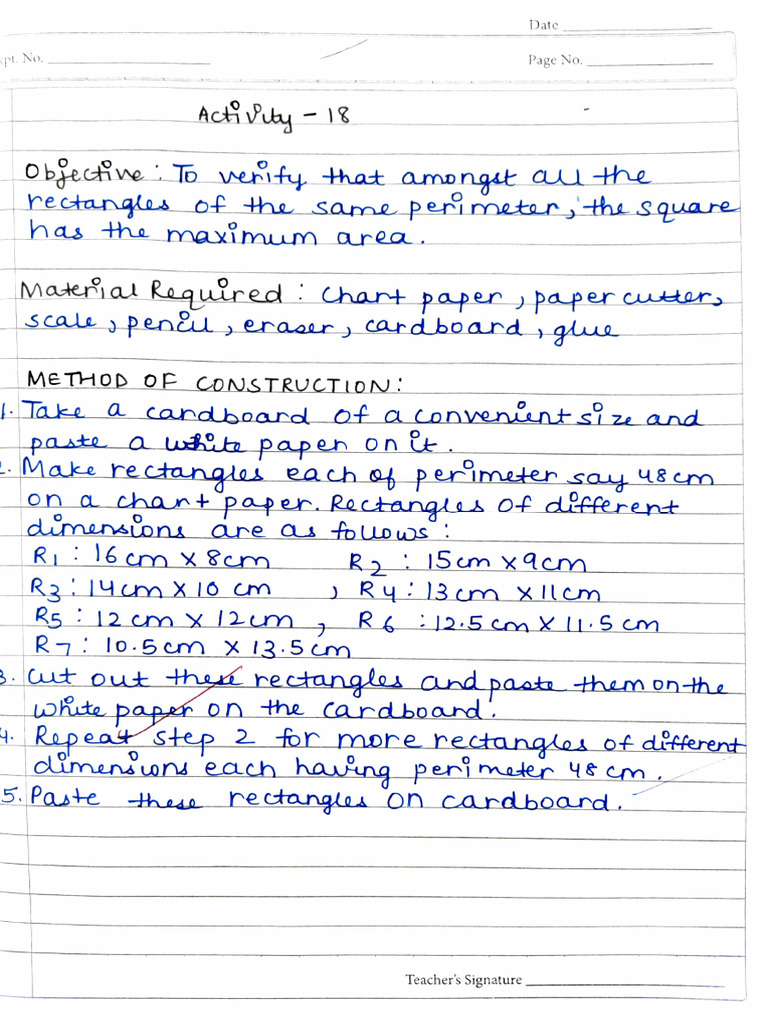 Date
xpt. No.
Page No.
Activity - 18
Objective : To verify that amongst all the
rectangles of the same perimeter, the square
has the maximum area.
Material Required : Chart paper, paper cutter,
scale, pencil, eraser, cardboard, glue
METHOD OF CONSTRUCTION:
1. Take a cardboard of a convenient size and
paste a white paper on it.
2. Make rectangles each of perimeter say 48 cm
on a chart paper. Rectangles of different
dimensions are as follows :
R1 : 16 cm X 8cm R2 : 15cm X 9cm
R3 : 14cm X 10 cm , R4 : 13 cm X 11cm
R5 : 12 cm X 12cm , R6 : 12.5 cm X 11.5 cm
R7 : 10.5 cm X 13.5 cm
3. Cut out these rectangles and paste them on the
white paper on the cardboard.
4. Repeat step 2 for more rectangles of different
dimensions each having perimeter 48 cm.
5. Paste these rectangles on cardboard.
Teacher's Signature